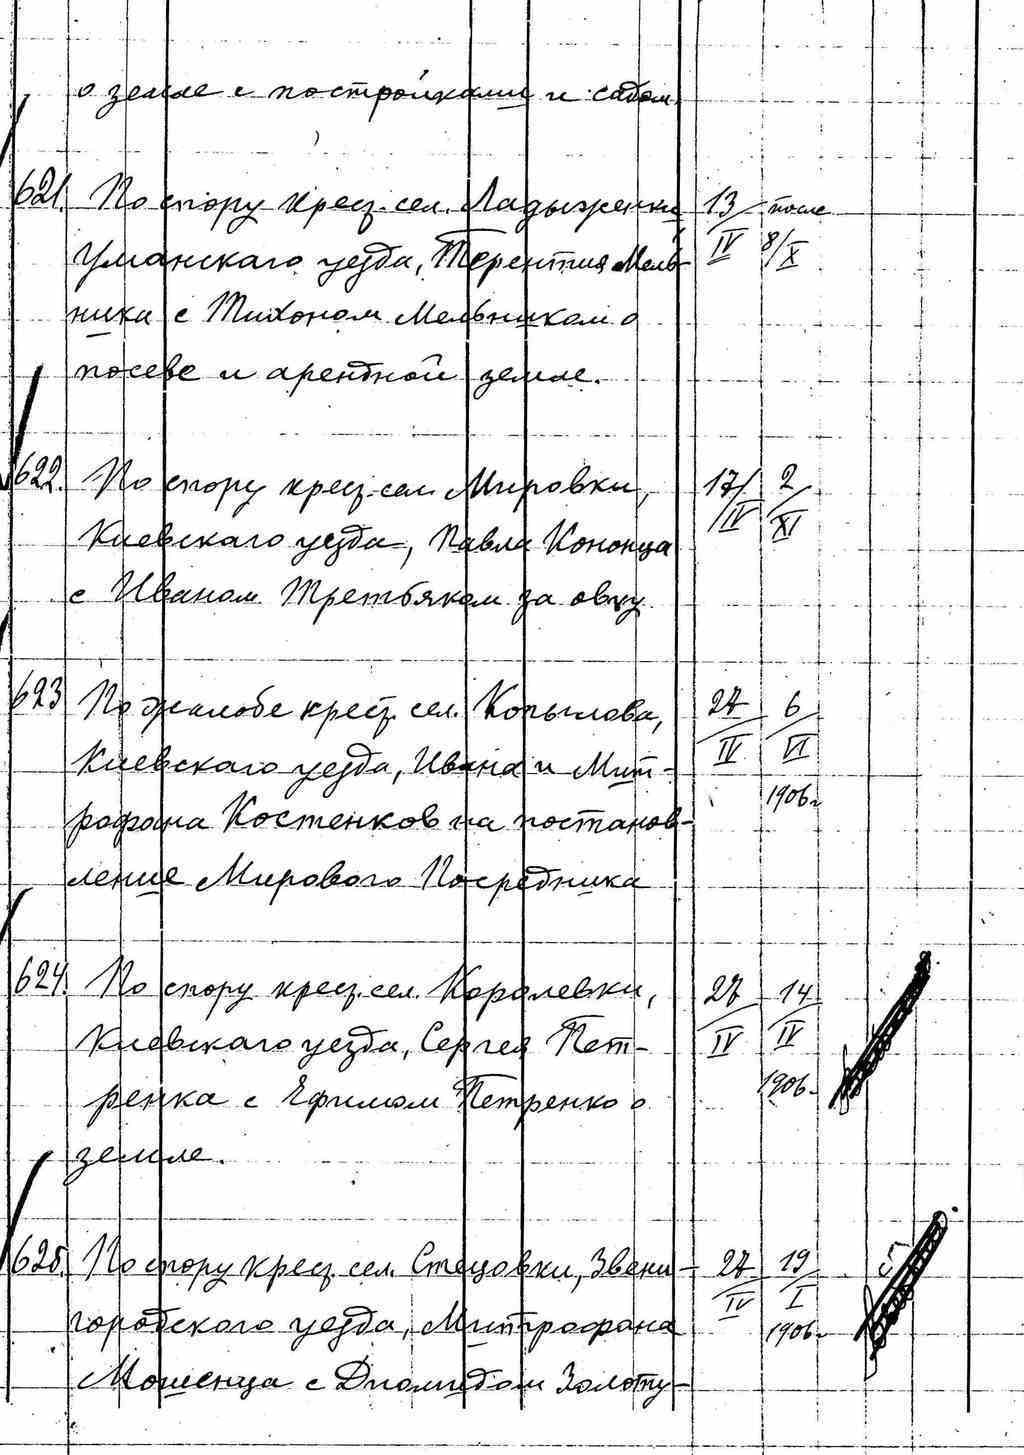 о земле с постройками и садом
621. По спору крест. сел. Ладыженки 13/IV после 8/X
Уманскаго уезда, Терентия Мель-
ника с Тихоном Мельником о
посеве и арендной земле.
622. По спору крест. сел. Мировки, 17/IV 2/XI
Киевскаго уезда, Павла Кононца
с Иваном Третьяком за овцу
623 По жалобе крест. сел. Копылова, 27/IV 6/VI
Киевскаго уезда, Ивана и Мит- 1906 г.
рофана Костенков на постанов-
ление Мирового Посредника
624. По спору крест. сел. Королевки, 27/IV 14/IV
Киевскаго уезда, Сергея Пет-
ренка с Ефимом Петренко о 1906 г.
земле.
625. По спору крест. сел. Стецовки, Звени- 27/IV 19/I
городского уезда, Митрофана 1906 г.
Мошенца с Диомидом Золоту-